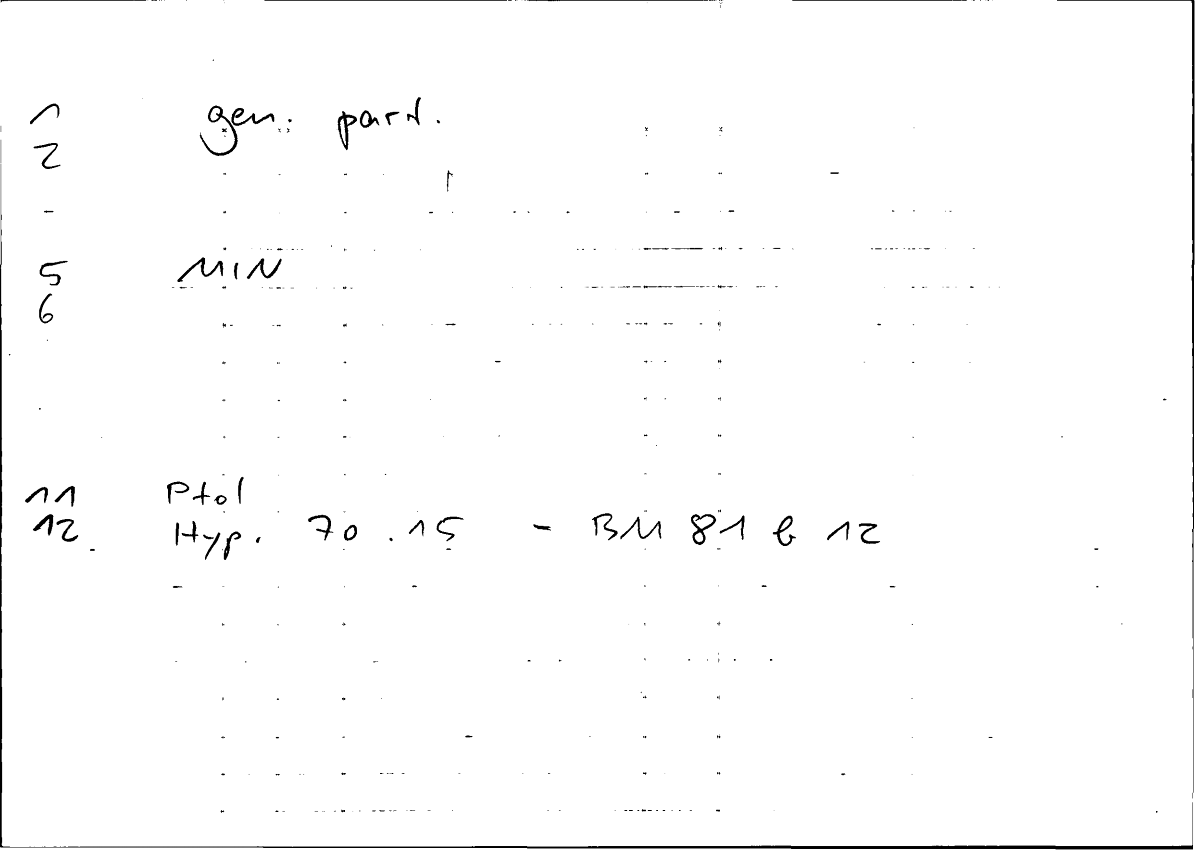 1 gen. part.
2
-
5 MIN
6
11 Ptol
12 Hyp. 70.15 - BM 81 b 12